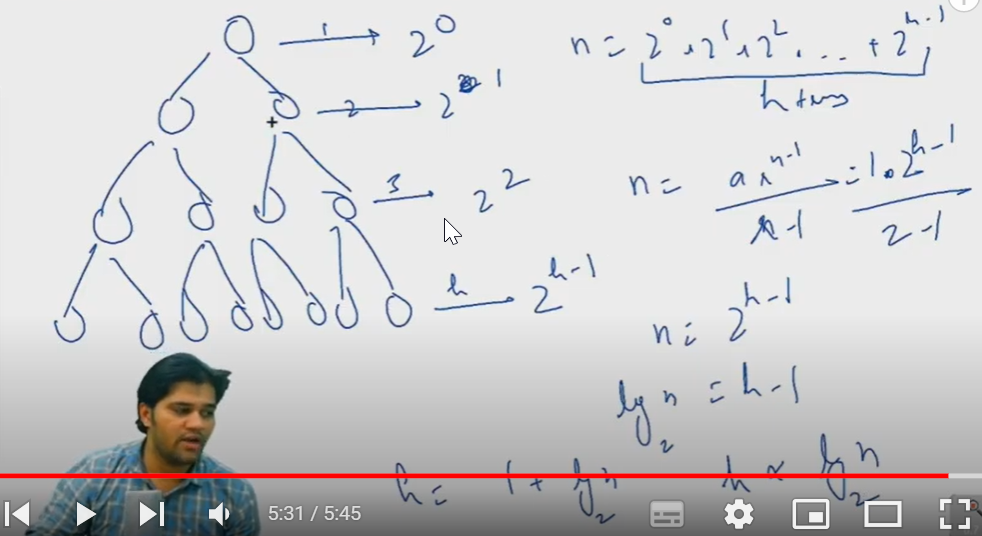 1 → 2⁰
2 → 2¹
3 → 2²
h → 2^(h-1)
n = 2⁰ + 2¹ + 2² + ... + 2^(h-1)
h terms
n = ar^(n-1) / r-1 = 1.2^(h-1) / 2-1
n = 2^(h-1)
log₂ n = h-1
h = 1 + log₂ n
h ∝ log₂ n
5:31 / 5:45